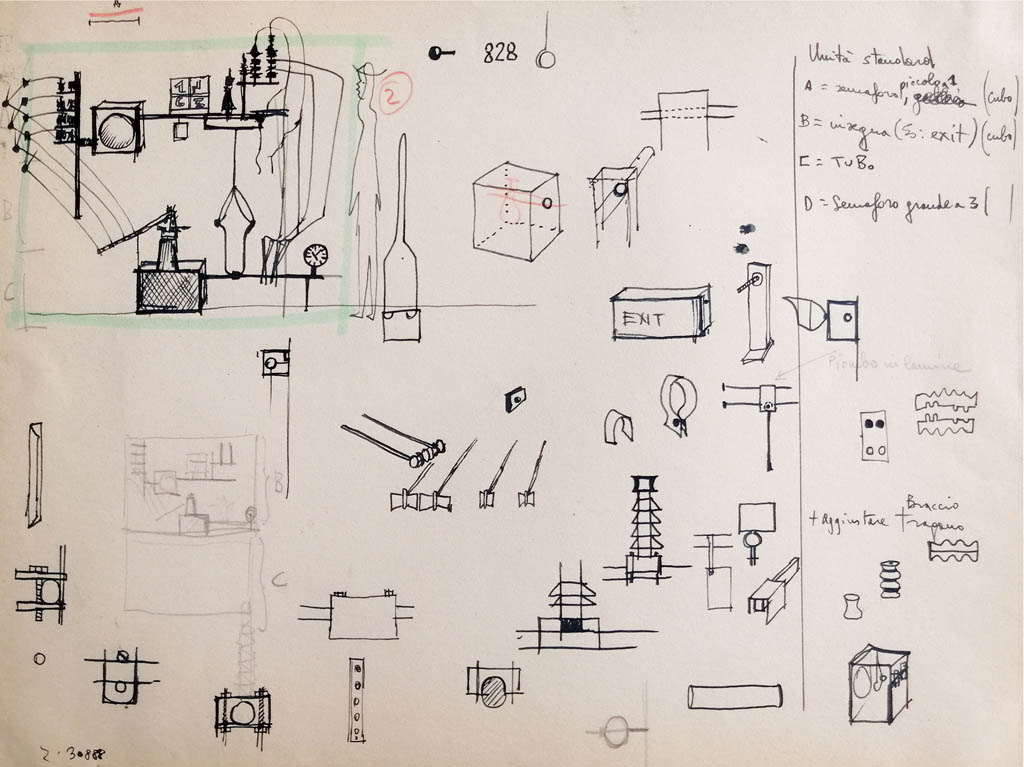 A
828
2
Unità standard
A = semaforo, piccolo a 1 (cubo)
B = insegna (Es: exit) (cubo)
C = TUBO
D = Semaforo grande a 3 (
B
C
EXIT
Piombo in lamine
B
C
Braccio
+ aggiustare trapano